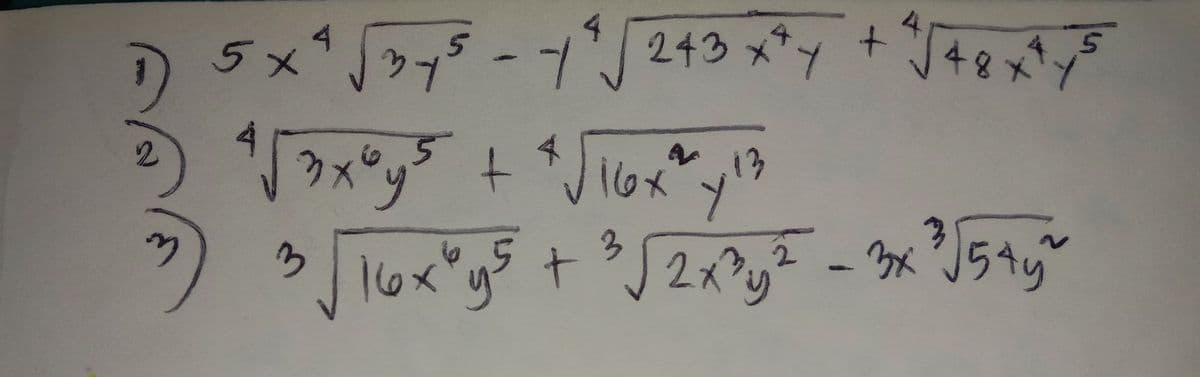 1) 5x ⁴√3y⁵ - y ⁴√243 x⁴y + ⁴√48 x⁴y⁵
2) ⁴√3x⁶y⁵ + ⁴√16x²y¹³
3) ³√16x⁶y⁵ + ³√2x³y² - 3x ³√54y²